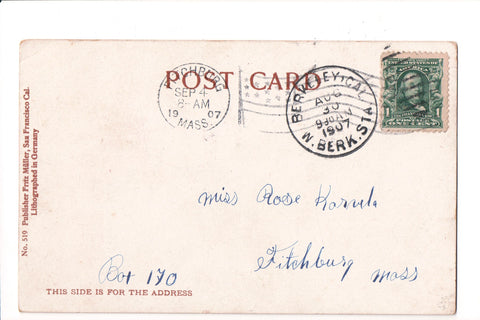 POST CARD
FITCHBURG
SEP 4
8-AM
1907
MASS.
BERKELEY, CAL.
AUG
30
930A
1907
N. BERK. STA.
1
No. 519 Publisher Fritz Müller, San Francisco Cal.
Lithographed in Germany
Miss Rose
Box 170
Fitchburg
Mass
THIS SIDE IS FOR THE ADDRESS